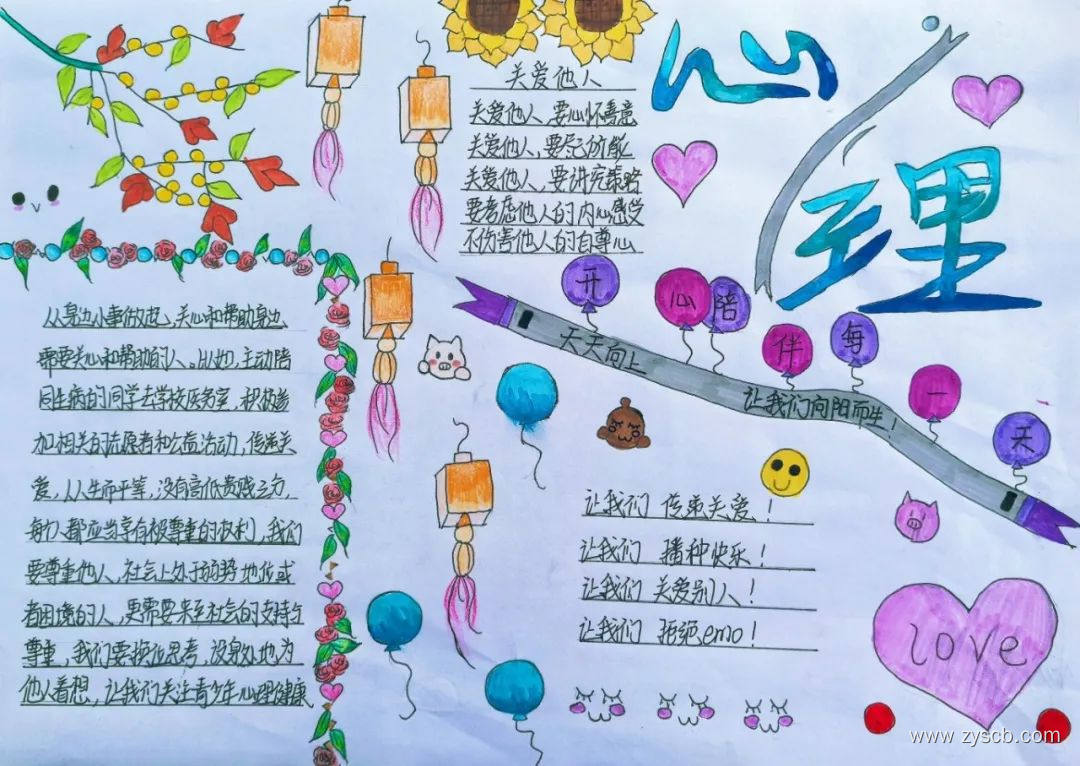 心理
关爱他人
关爱他人，要心怀善意
关爱他人，要尽己所能
关爱他人，要讲究策略
要考虑他人的内心感受
不伤害他人的自尊心
开心陪伴每一天
天天向上
让我们向阳而生！
从身边小事做起，关心和帮助身边
需要关心和帮助的人。比如，主动陪
同生病的同学去学校医务室，积极参
加相关的志愿者和公益活动，传递关
爱，人人生而平等，没有高低贵贱之分，
每个人都应当享有被尊重的权利，我们
要尊重他人，社会上处于弱势地位或
者困境的人，更需要来自社会的支持与
尊重，我们要换位思考，设身处地为
他人着想，让我们关注青少年心理健康
让我们 传递关爱！
让我们 播种快乐！
让我们 关爱别人！
让我们 拒绝emo！
love
www.zyscb.com